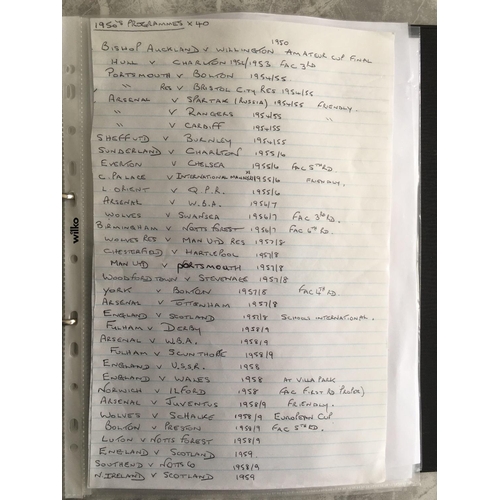 1950's PROGRAMMES x 40
1950
BISHOP AUCKLAND V WILLINGTON AMATEUR CUP FINAL
HULL V CHARLTON 1952/1953 FAC 3RD
PORTSMOUTH V BOLTON 1954/55
" RES V BRISTOL CITY RES 1954/55
ARSENAL V SPARTAK (RUSSIA) 1954/55 FRIENDLY
" V RANGERS 1954/55 "
" V CARDIFF 1954/55
SHEFF UTD V BURNLEY 1954/55
SUNDERLAND V CHARLTON 1955/6
EVERTON V CHELSEA 1955/6 FAC 5TH RD
C. PALACE V INTERNATIONAL 1955/6 FRIENDLY.
L. ORIENT V Q.P.R. 1955/6
ARSENAL V W.B.A. 1956/7
WOLVES V SWANSEA 1956/7 FAC 3RD RD.
BIRMINGHAM V NOTTS FOREST 1956/7 FAC 6TH RD.
WOLVES RES V MAN UTD RES 1957/8
CHESTERFIELD V HARTLEPOOL 1957/8
MAN UTD V PORTSMOUTH 1957/8
WOODFORD TOWN V STEVENAGE 1957/8
YORK V BOLTON 1957/8 FAC 4TH RD
ARSENAL V TOTTENHAM 1957/8
ENGLAND V SCOTLAND 1957/8 SCHOOLS INTERNATIONAL.
FULHAM V DERBY 1958/9
ARSENAL V W.B.A. 1958/9
FULHAM V SCUNTHORPE 1958/9
ENGLAND V U.S.S.R. 1958
ENGLAND V WALES 1958 AT VILLA PARK
NORWICH V ILFORD 1958 FAC FIRST RD PROPER)
ARSENAL V JUVENTUS 1958/9 FRIENDLY.
WOLVES V SCHALKE 1958/9 EUROPEAN CUP
BOLTON V PRESTON 1958/9 FAC 5TH RD.
LUTON V NOTTS FOREST 1958/9
ENGLAND V SCOTLAND 1959.
SOUTHEND V NOTTS CO 1958/9
N. IRELAND V SCOTLAND 1959
wilko